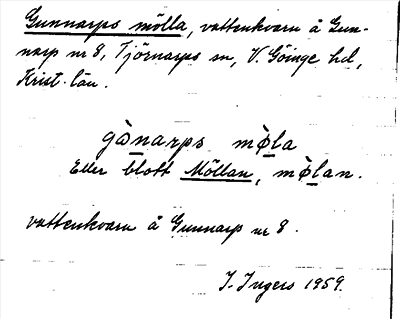 Gunnarps mölla, vattenkvarn å Gun-
narp nr 8, Tjörnarps sn, V. Göinge hd,
Krist. län.
gònarps mø̀la
Eller blott Möllan, mø̀lan.
vattenkvarn å Gunnarp nr 8.
I. Ingers 1959.